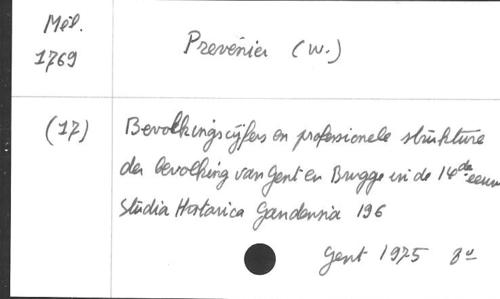 Mél.
1769
Prevenier (W.)
(17)
Bevolkingscijfers en professionele strukture
der bevolking van Gent en Brugge in de 14de eeuw
Studia Historica Gandensia 196
Gent 1975 8°